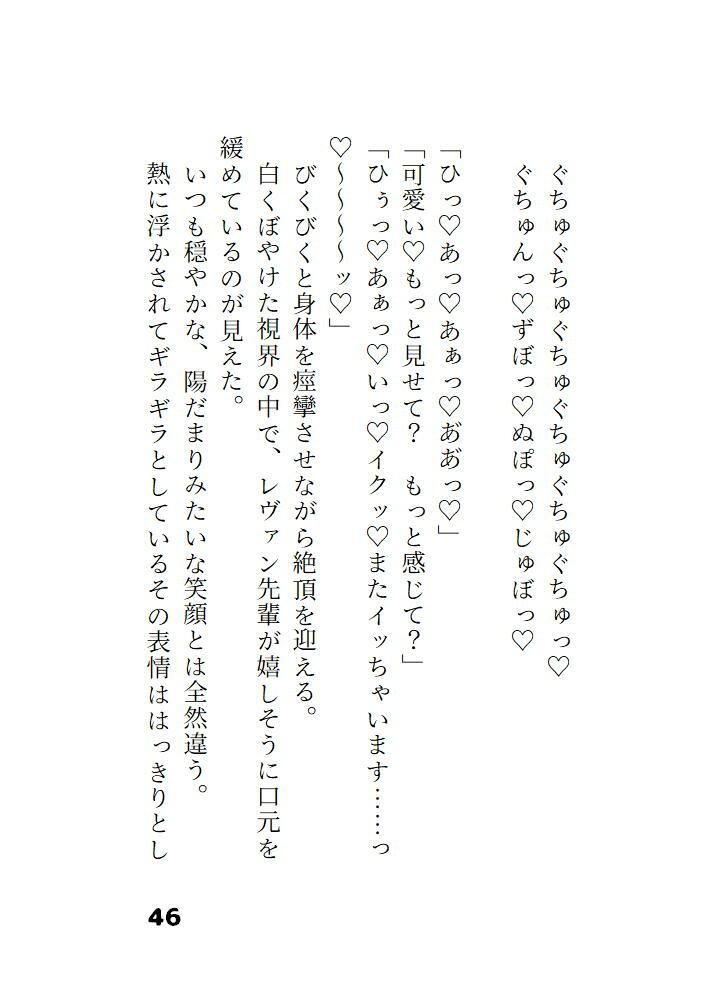 ぐちゅぐちゅぐちゅぐちゅぐちゅぐちゅっ♡
ぐちゅんっ♡ずぼっ♡ぬぽっ♡じゅぼっ♡
「ひっ♡あっ♡あぁっ♡あ゙あ゙っ♡」
「可愛い♡もっと見せて？　もっと感じて？」
「ひぅっ♡あぁっ♡いっ♡イクッ♡またイッちゃいます……っ
♡～～～～ッ♡」
びくびくと身体を痙攣させながら絶頂を迎える。
白くぼやけた視界の中で、レヴァン先輩が嬉しそうに口元を
緩めているのが見えた。
いつも穏やかな、陽だまりみたいな笑顔とは全然違う。
熱に浮かされてギラギラとしているその表情ははっきりとし
46